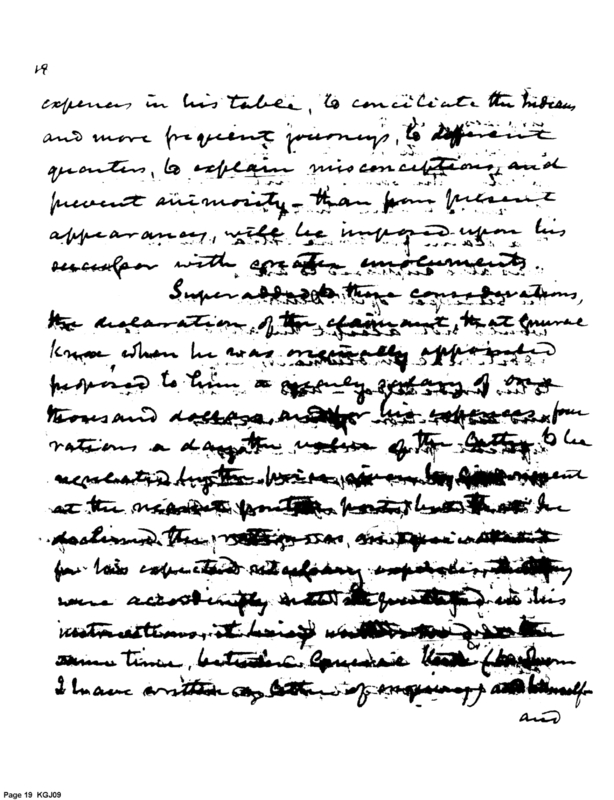 19
expences in his table, to conciliate the Indians
and more frequent journeys, to different
quarters, to explain misconceptions, and
prevent animosity - than from present
appearances, will be imposed upon his
with greater emoluments.
Superadded to these considerations,
the declaration of the claimant, that General
Knox when he was originally appointed
proposed to him a yearly salary of one
thousand dollars, and for his expences four
rations a day, the value of the latter to be
regulated by the price given by Government
at the nearest posts, but that he
declined the rations, as
for his expected expences,
were accordingly in his
instructions, it being understood at the
same time, between General Knox (to whom
I have written a letter of enquiry) and himself
and
Page 19 KGJ09